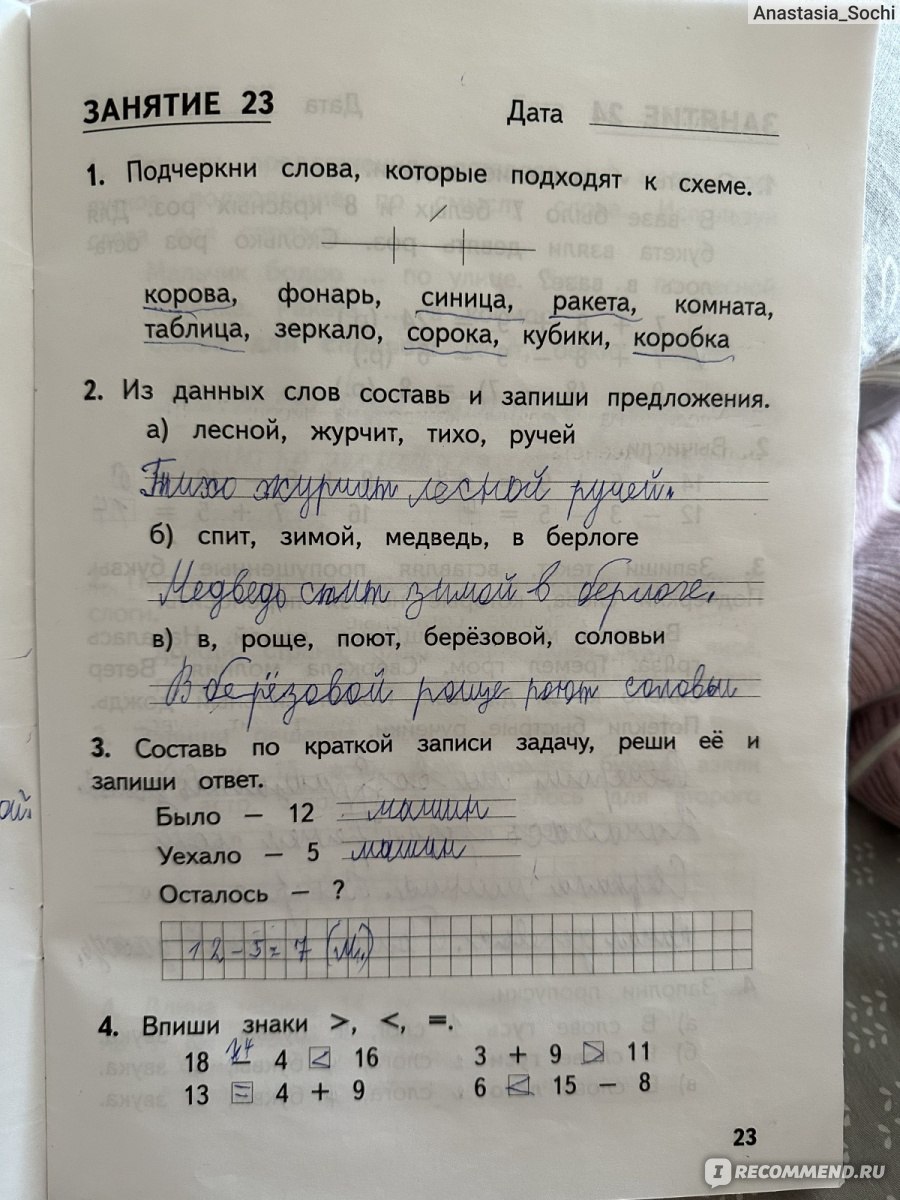 Anastasia_Sochi
ЗАНЯТИЕ 23 Дата
1. Подчеркни слова, которые подходят к схеме.
корова, фонарь, синица, ракета, комната,
таблица, зеркало, сорока, кубики, коробка
2. Из данных слов составь и запиши предложения.
а) лесной, журчит, тихо, ручей
Тихо журчит лесной ручей.
б) спит, зимой, медведь, в берлоге
Медведь спит зимой в берлоге.
в) в, роще, поют, берёзовой, соловьи
В берёзовой роще поют соловьи
3. Составь по краткой записи задачу, реши её и
запиши ответ.
Было – 12 машин
Уехало – 5 машин
Осталось – ?
12-5=7 (м.)
4. Впиши знаки >, <, =.
18 – 4 < 16 3 + 9 > 11
13 = 4 + 9 6 < 15 – 8
23
IRECOMMEND.RU